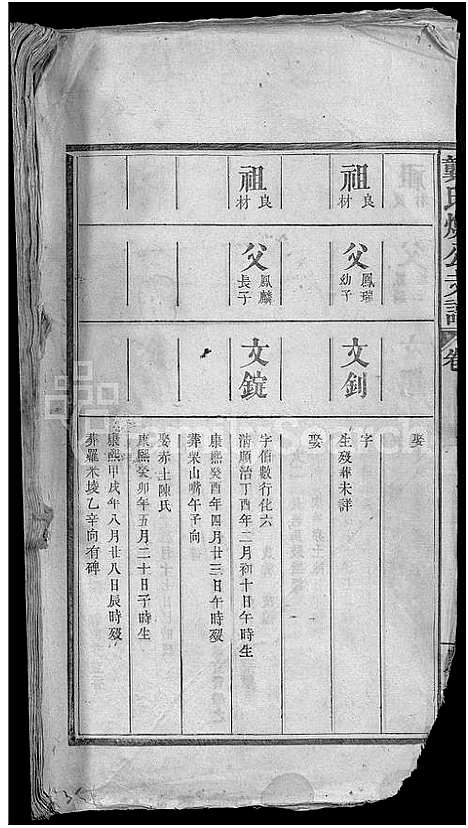 龔氏煥公支譜
卷
娶
祖良材
父鳳瑞幼子
文釗
字
生歿葬未詳
娶
祖良材
父鳳麟長子
文錠
字伯數行化六
清順治丁酉年二月初十日午時生
康熙癸酉年四月廿三日午時歿
葬眾山嘴午子向
娶赤土陳氏
康熙癸卯年五月二十日子時生
康熙甲戌年八月廿八日辰時歿
葬羅米堎乙辛向有碑